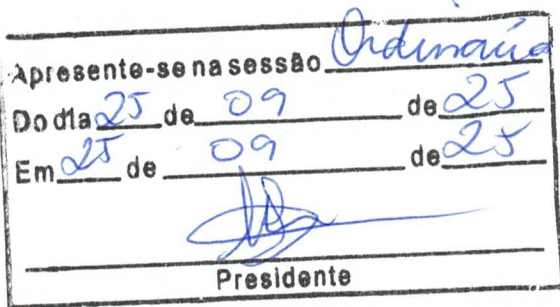 Apresente-se na sessão Ordinária
Do dia 25 de 09 de 25
Em 25 de 09 de 25
Presidente